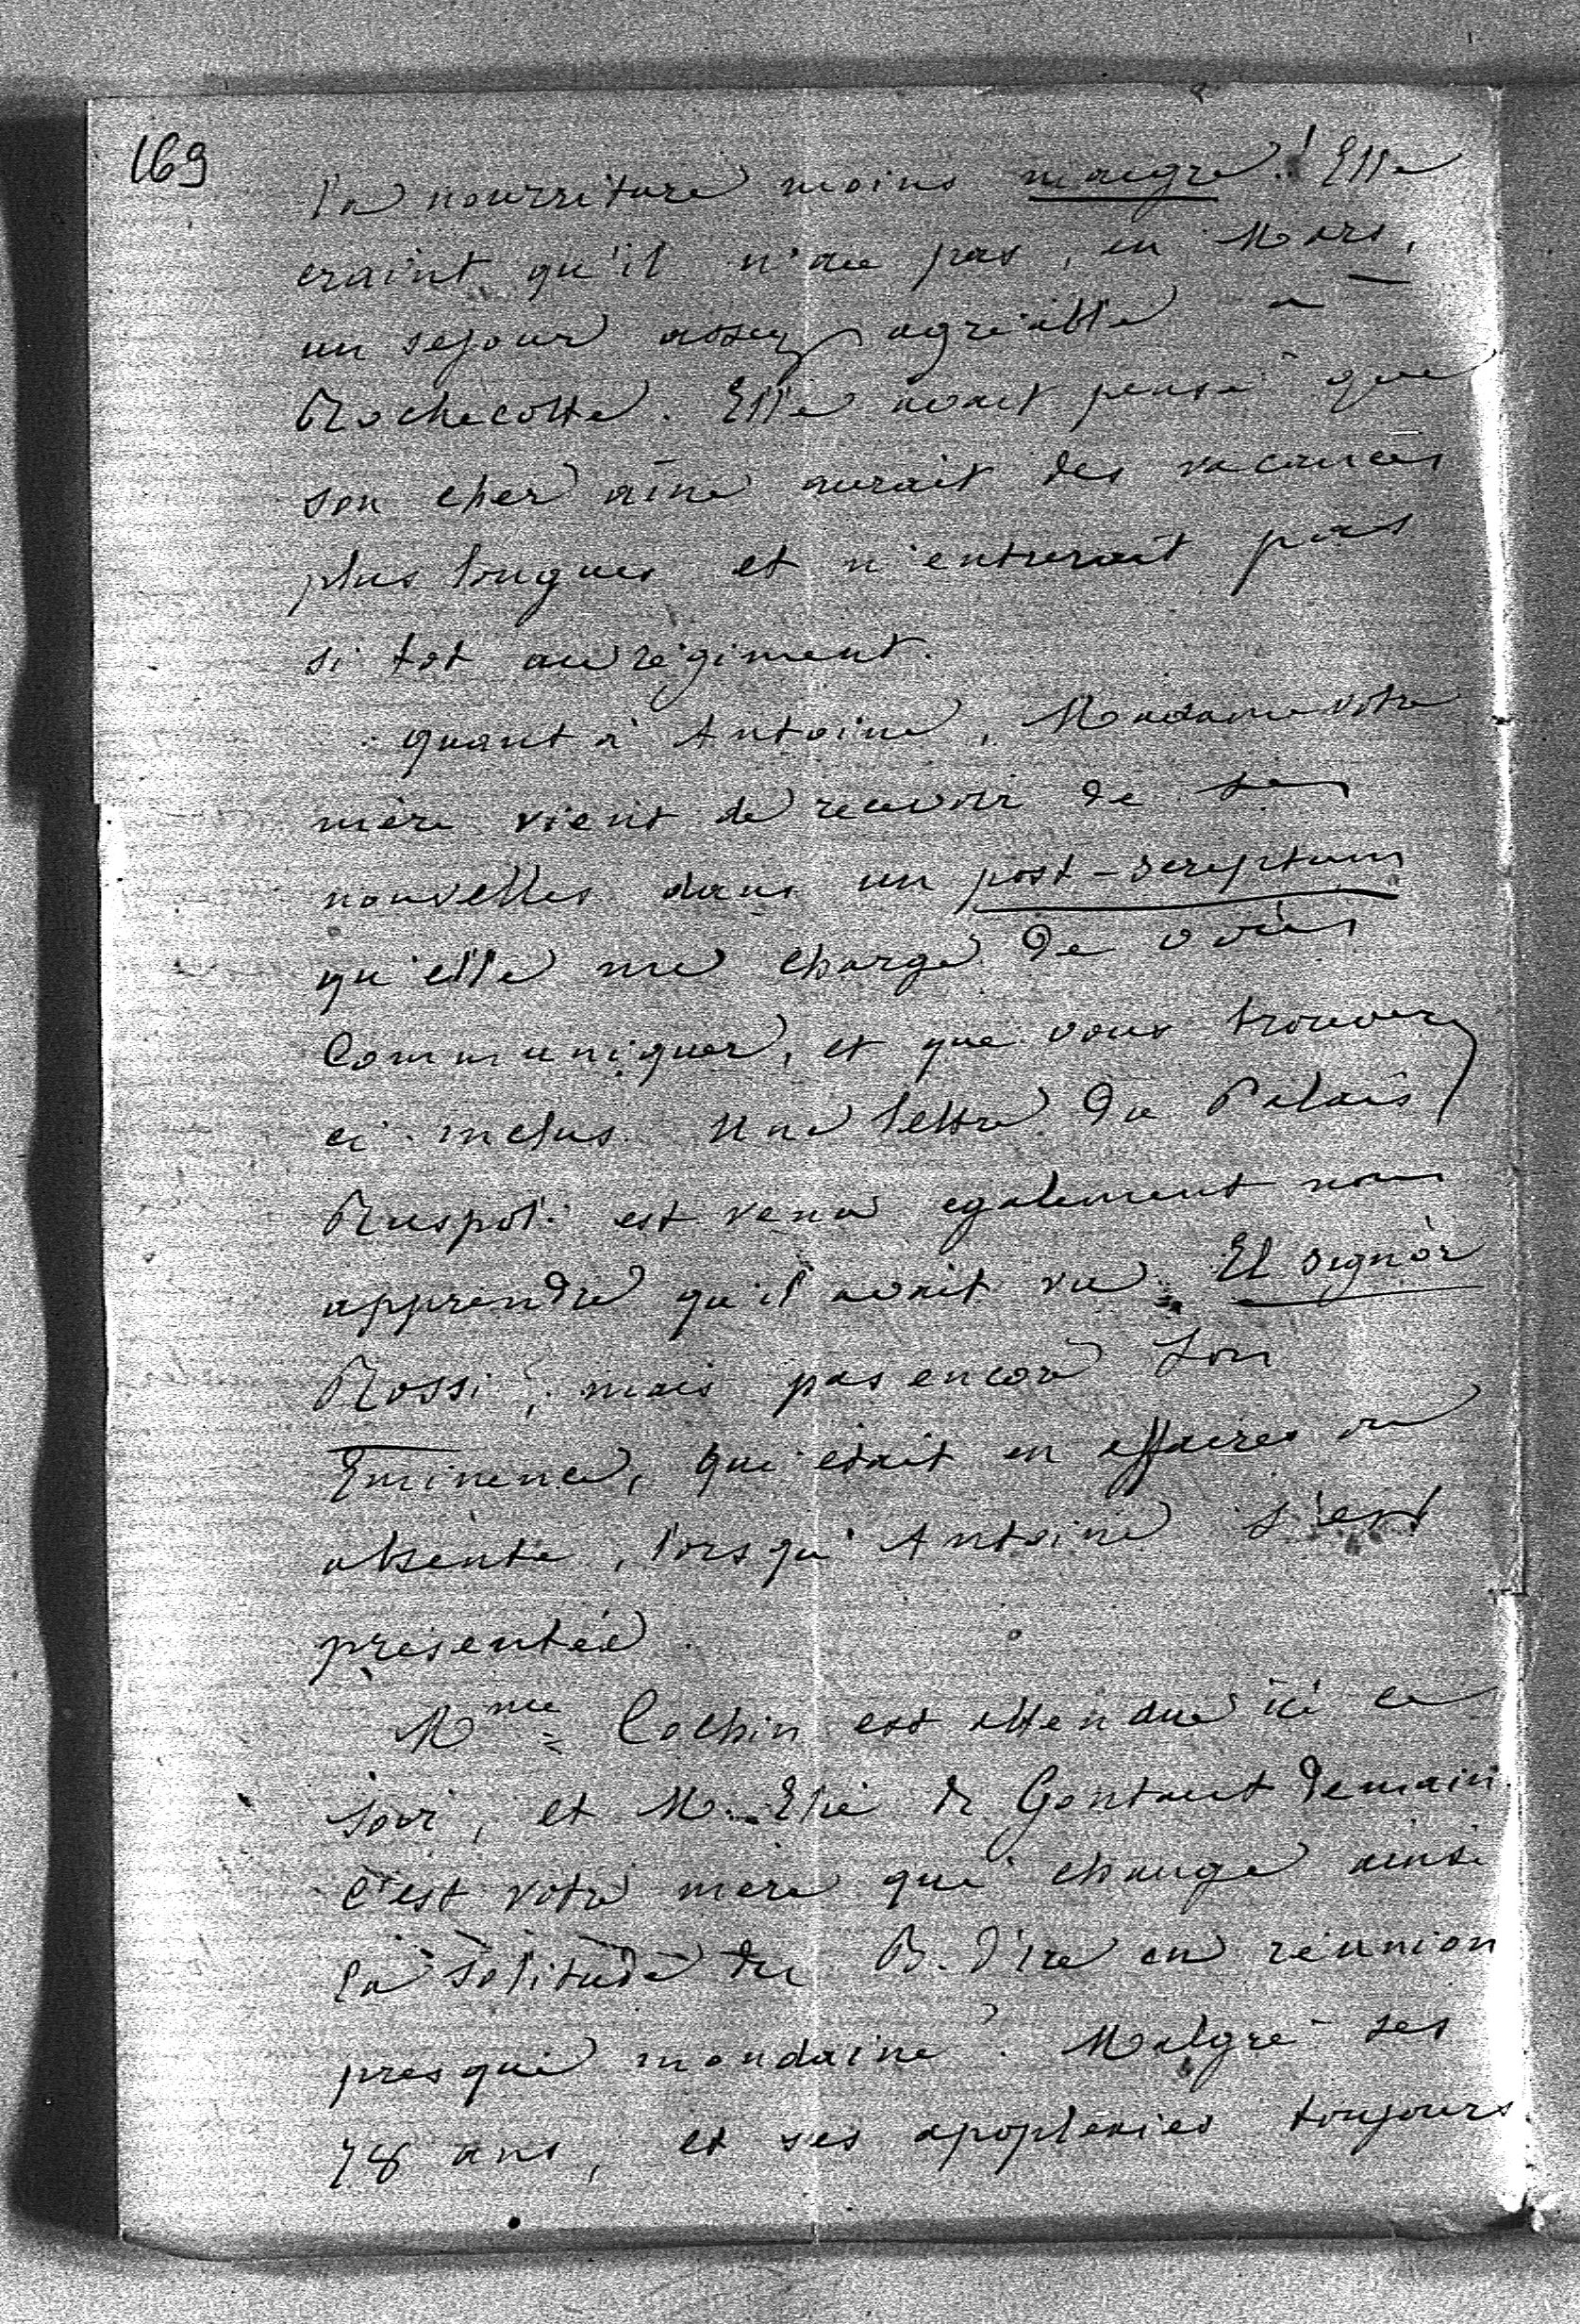 169
la nourriture moins maigre! Elle
craint qu'il n'ait pas, en Mars,
un sejour assez agréable à
Rochecotte. Elle avait pensé que
son cher ainé aurait des vacances
plus longues et n'entrerait pas
si tot au régiment.
quant à Antoine, Madame votre
mère vient de recevoir de ses
nouvelles dans un post-scriptum
qu'elle me charge de vous
Communiquer, et que vous trouverez
ci-inclus. Une lettre du Palais
Ruspoli est venue egalement nous
apprendre qu'il avait vu El signor
Rossi, mais pas encore Son
Eminence, qui était en affaires ou
absente, lorsqu'Antoine s'est
présenté.
Mme Cochin est attendue ici ce
soir, et M. Elie de Gontaut demain.
C'est votre mère qui change ainsi
la solitude du B. d'Iré en réunion
presque mondaine. Malgré ses
78 ans, et ses apoplexies toujours